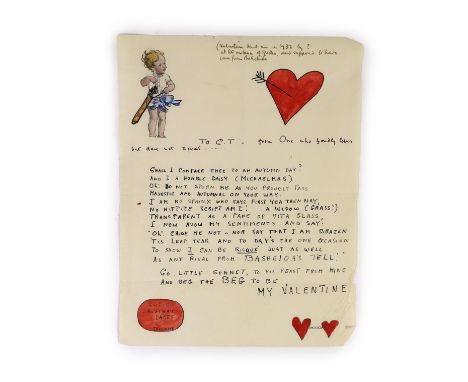 (Valentine sent me in 1932 by ?
at the instance of and supposed to have
come from Bathsheba
TO C.T. from One who fondly loves
but dare not
SHALL I COMPARE THEE TO AN AUTUMN DAY?
AND I A HUMBLE DAISY (MICHAELMAS)
OH! DO NOT SPURN ME AS YOU PROUDLY PASS
MAJESTIC AND AUTUMNAL ON YOUR WAY.
I AM NO SPHINX WHO SAYS FIRST YEA THEN NAY,
NO HITTITE SCRIPT AM I! A WIDOW (GRASS!)
TRANSPARENT AS A PANE OF VITA GLASS,
I NOW AVOW MY SENTIMENTS AND SAY:
'OH! CHIDE ME NOT - NOR SAY THAT I AM BRAZEN
'TIS LEAP YEAR AND TO DAY'S THE ONE OCCASION
TO SHOW I CAN BE RISQUÉ JUST AS WELL
AS ANY RIVAL FROM BASHEIDA'S TELL!'
GO LITTLE SONNET, TO HIS HEART FROM MINE
AND BEG THE BEG TO BE
MY VALENTINE